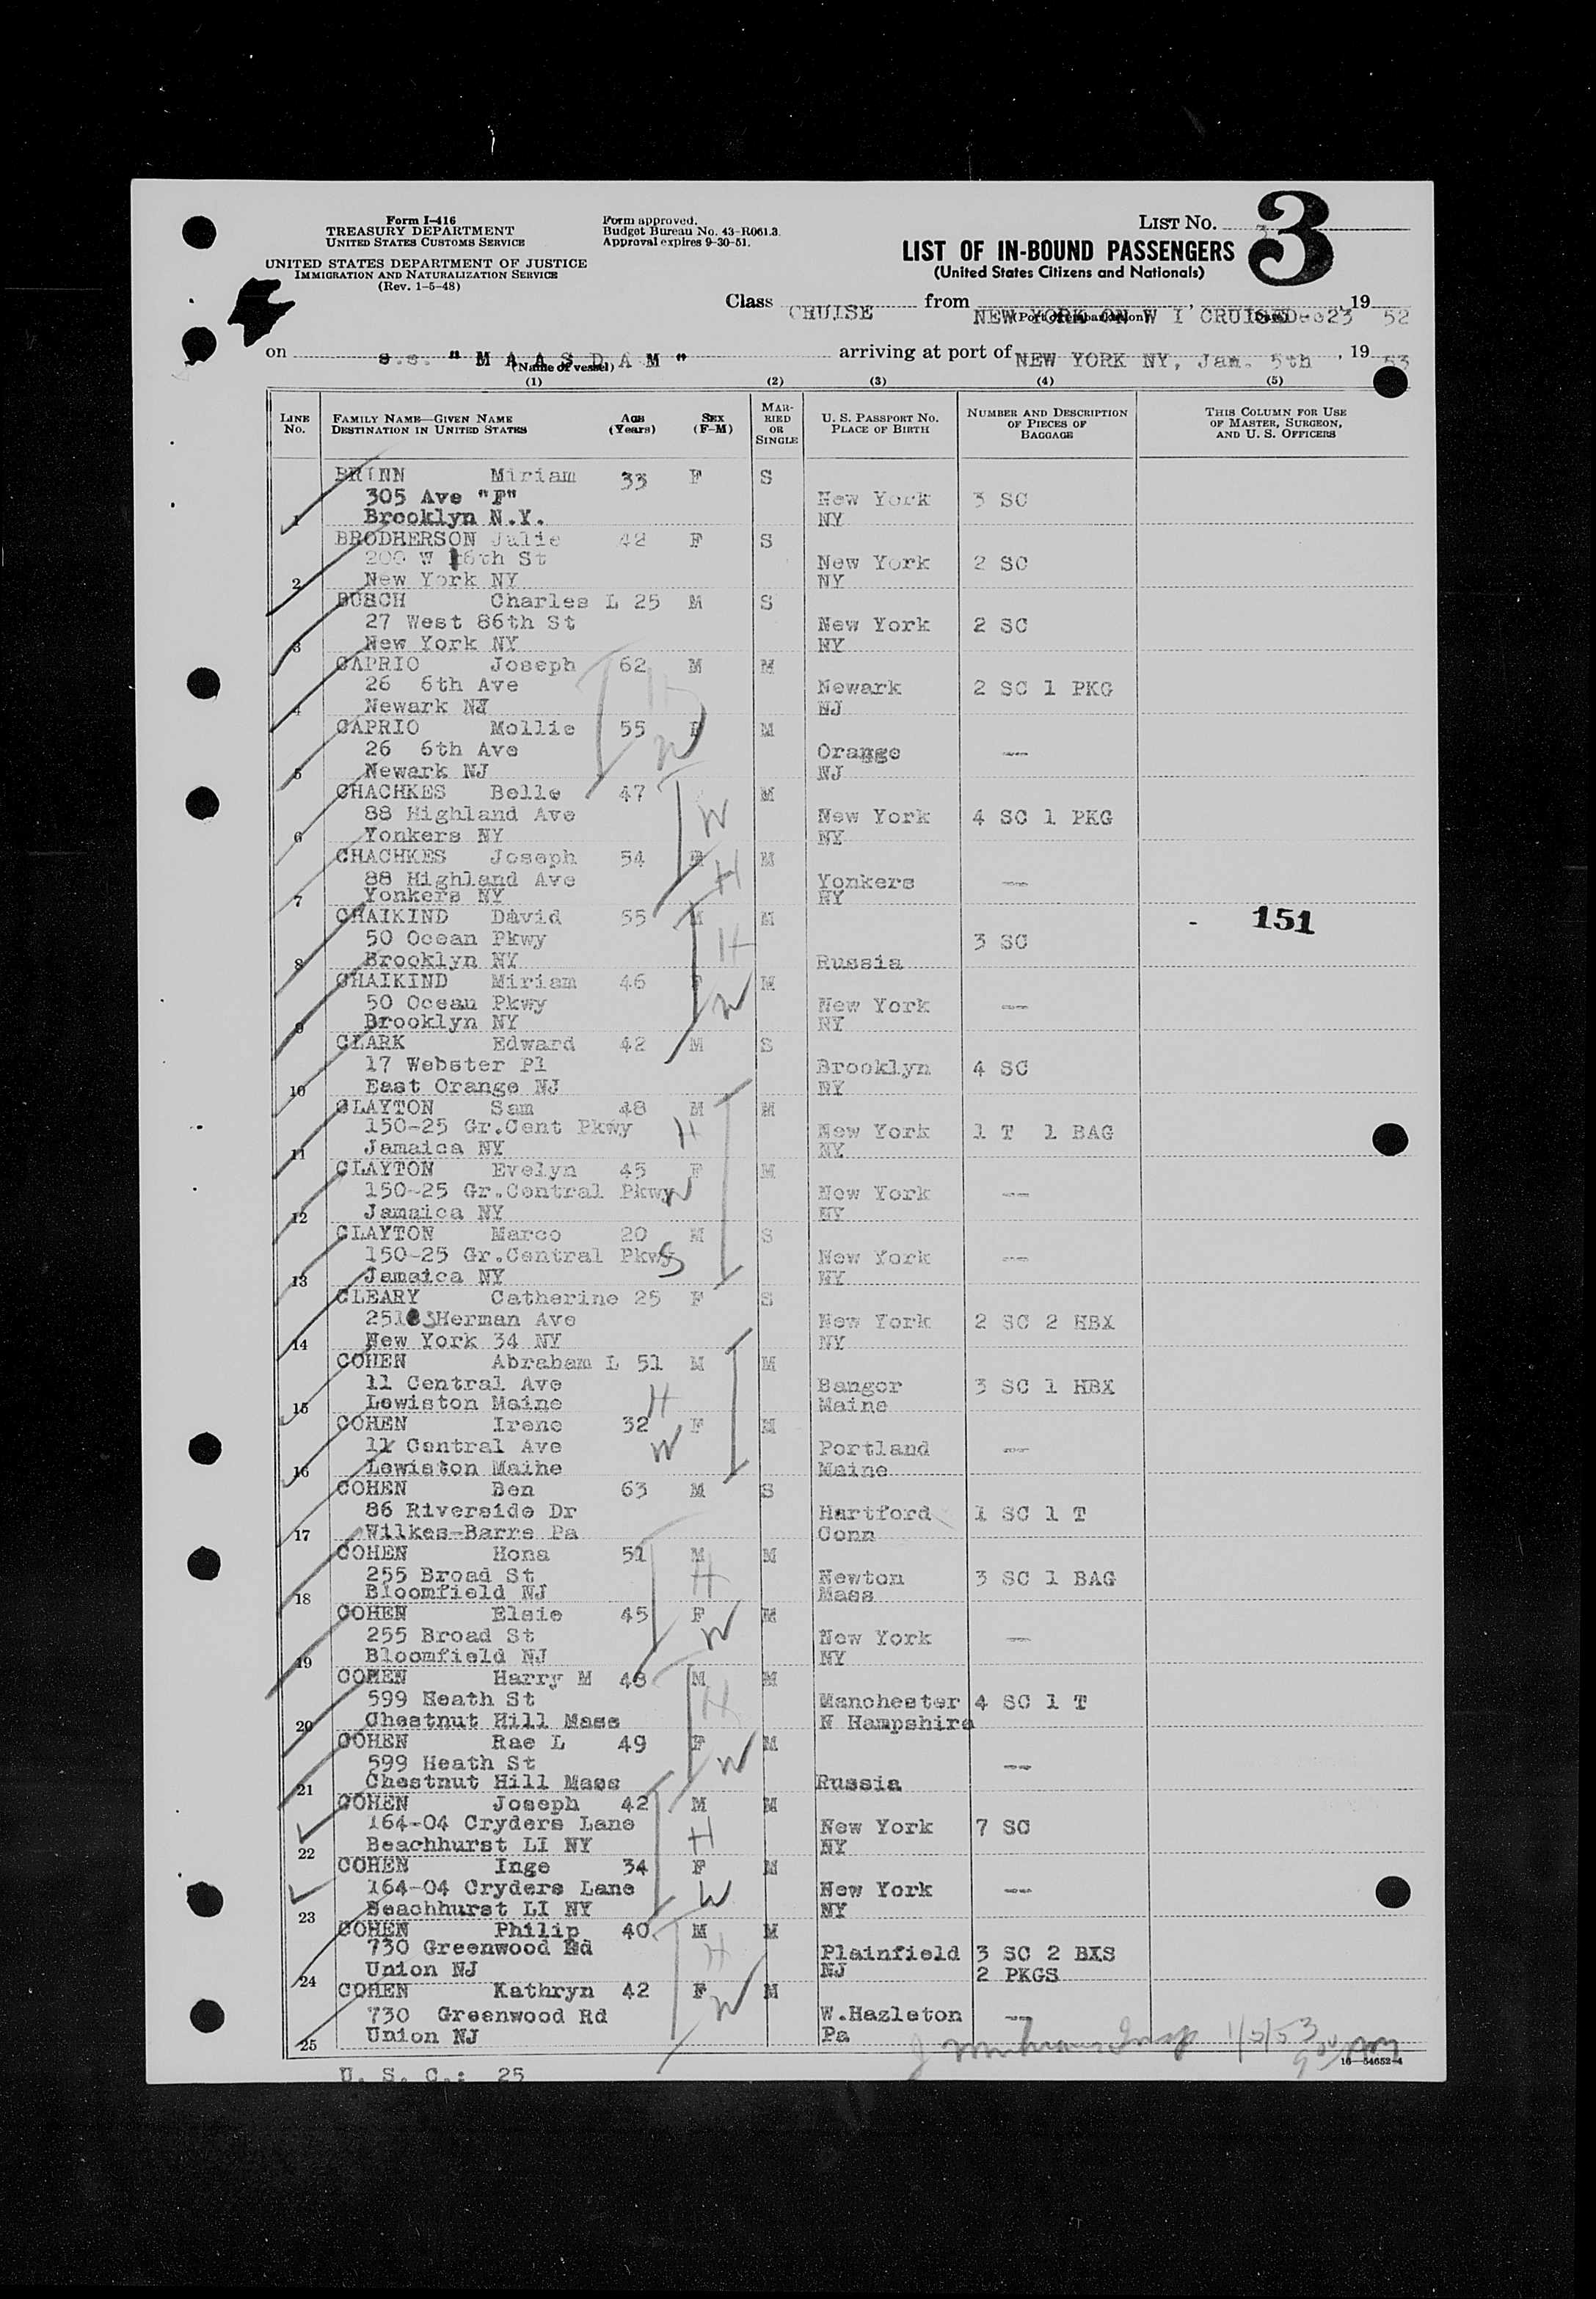 Form I-416
TREASURY DEPARTMENT
UNITED STATES CUSTOMS SERVICE
UNITED STATES DEPARTMENT OF JUSTICE
IMMIGRATION AND NATURALIZATION SERVICE
(Rev. 1-5-48)
Form approved.
Budget Bureau No. 43-R061.3.
Approval expires 9-30-51.
LIST No. 3
3
LIST OF IN-BOUND PASSENGERS
(United States Citizens and Nationals)
Class CRUISE from NEW YORK ON W I CRUISE Dec 23, 19 52
(Port of embarkation) (Date)
on s.s. "M A A S D A M" arriving at port of NEW YORK NY, Jan. 5th, 19 53
(Name of vessel)
(1) (2) (3) (4) (5)
LINE No. FAMILY NAME—GIVEN NAME DESTINATION IN UNITED STATES AGE (Years) SEX (F-M) MARRIED OR SINGLE U. S. PASSPORT NO. PLACE OF BIRTH NUMBER AND DESCRIPTION OF PIECES OF BAGGAGE THIS COLUMN FOR USE OF MASTER, SURGEON, AND U. S. OFFICERS
BRINN Miriam 33 F S
305 Ave "F" New York 3 SC
1 Brooklyn N.Y. NY
BRODHERSON Julie 42 F S
200 W 16th St New York 2 SC
2 New York NY NY
BUSCH Charles L 25 M S
27 West 86th St New York 2 SC
3 New York NY NY
CAPRIO Joseph 62 M M
26 6th Ave Newark 2 SC 1 PKG
4 Newark NJ NJ
CAPRIO Mollie 55 F M
26 6th Ave Orange --
5 Newark NJ NJ
CHACHKES Belle 47 M
88 Highland Ave New York 4 SC 1 PKG
6 Yonkers NY NY
W
CHACHKES Joseph 54 M M
88 Highland Ave Yonkers --
7 Yonkers NY NY
H
CHAIKIND David 55 M M
- 151
50 Ocean Pkwy 3 SC
8 Brooklyn NY Russia
H
CHAIKIND Miriam 46 F M
50 Ocean Pkwy New York --
9 Brooklyn NY NY
W
CLARK Edward 42 M S
17 Webster Pl Brooklyn 4 SC
10 East Orange NJ NY
CLAYTON Sam 48 M M
150-25 Gr.Cent Pkwy H New York 1 T 1 BAG
11 Jamaica NY NY
CLAYTON Evelyn 45 F M
150-25 Gr.Central Pkwy W New York --
12 Jamaica NY NY
CLAYTON Marco 20 M S
150-25 Gr.Central Pkwy S New York --
13 Jamaica NY NY
CLEARY Catherine 25 F S
Herman Ave New York 2 SC 2 HBX
14 New York 34 NY NY
COHEN Abraham L 51 M M
11 Central Ave Bangor 3 SC 1 HBX
15 Lewiston Maine H Maine
COHEN Irene 32 F M
11 Central Ave W Portland --
16 Lewiston Maine Maine
COHEN Ben 63 M S
86 Riverside Dr Hartford 1 SC 1 T
17 Wilkes-Barre Pa Conn
COHEN Hona 51 M M
255 Broad St H Newton 3 SC 1 BAG
18 Bloomfield NJ Mass
COHEN Elsie 45 F M
255 Broad St W New York --
19 Bloomfield NJ NY
COHEN Harry M 48 M M
599 Heath St H Manchester 4 SC 1 T
20 Chestnut Hill Mass N Hampshire
COHEN Rae L 49 F M
599 Heath St W --
21 Chestnut Hill Mass Russia
COHEN Joseph 42 M M
164-04 Cryders Lane H New York 7 SC
22 Beachhurst LI NY NY
COHEN Inge 34 F M
164-04 Cryders Lane W New York --
23 Beachhurst LI NY NY
COHEN Philip 40 M M
730 Greenwood Rd H Plainfield 3 SC 2 BXS
24 Union NJ NJ 2 PKGS
COHEN Kathryn 42 F M
730 Greenwood Rd W W.Hazleton --
25 Union NJ Pa
Insp 1/5/53
16—54652-4
U. S. C.: 25